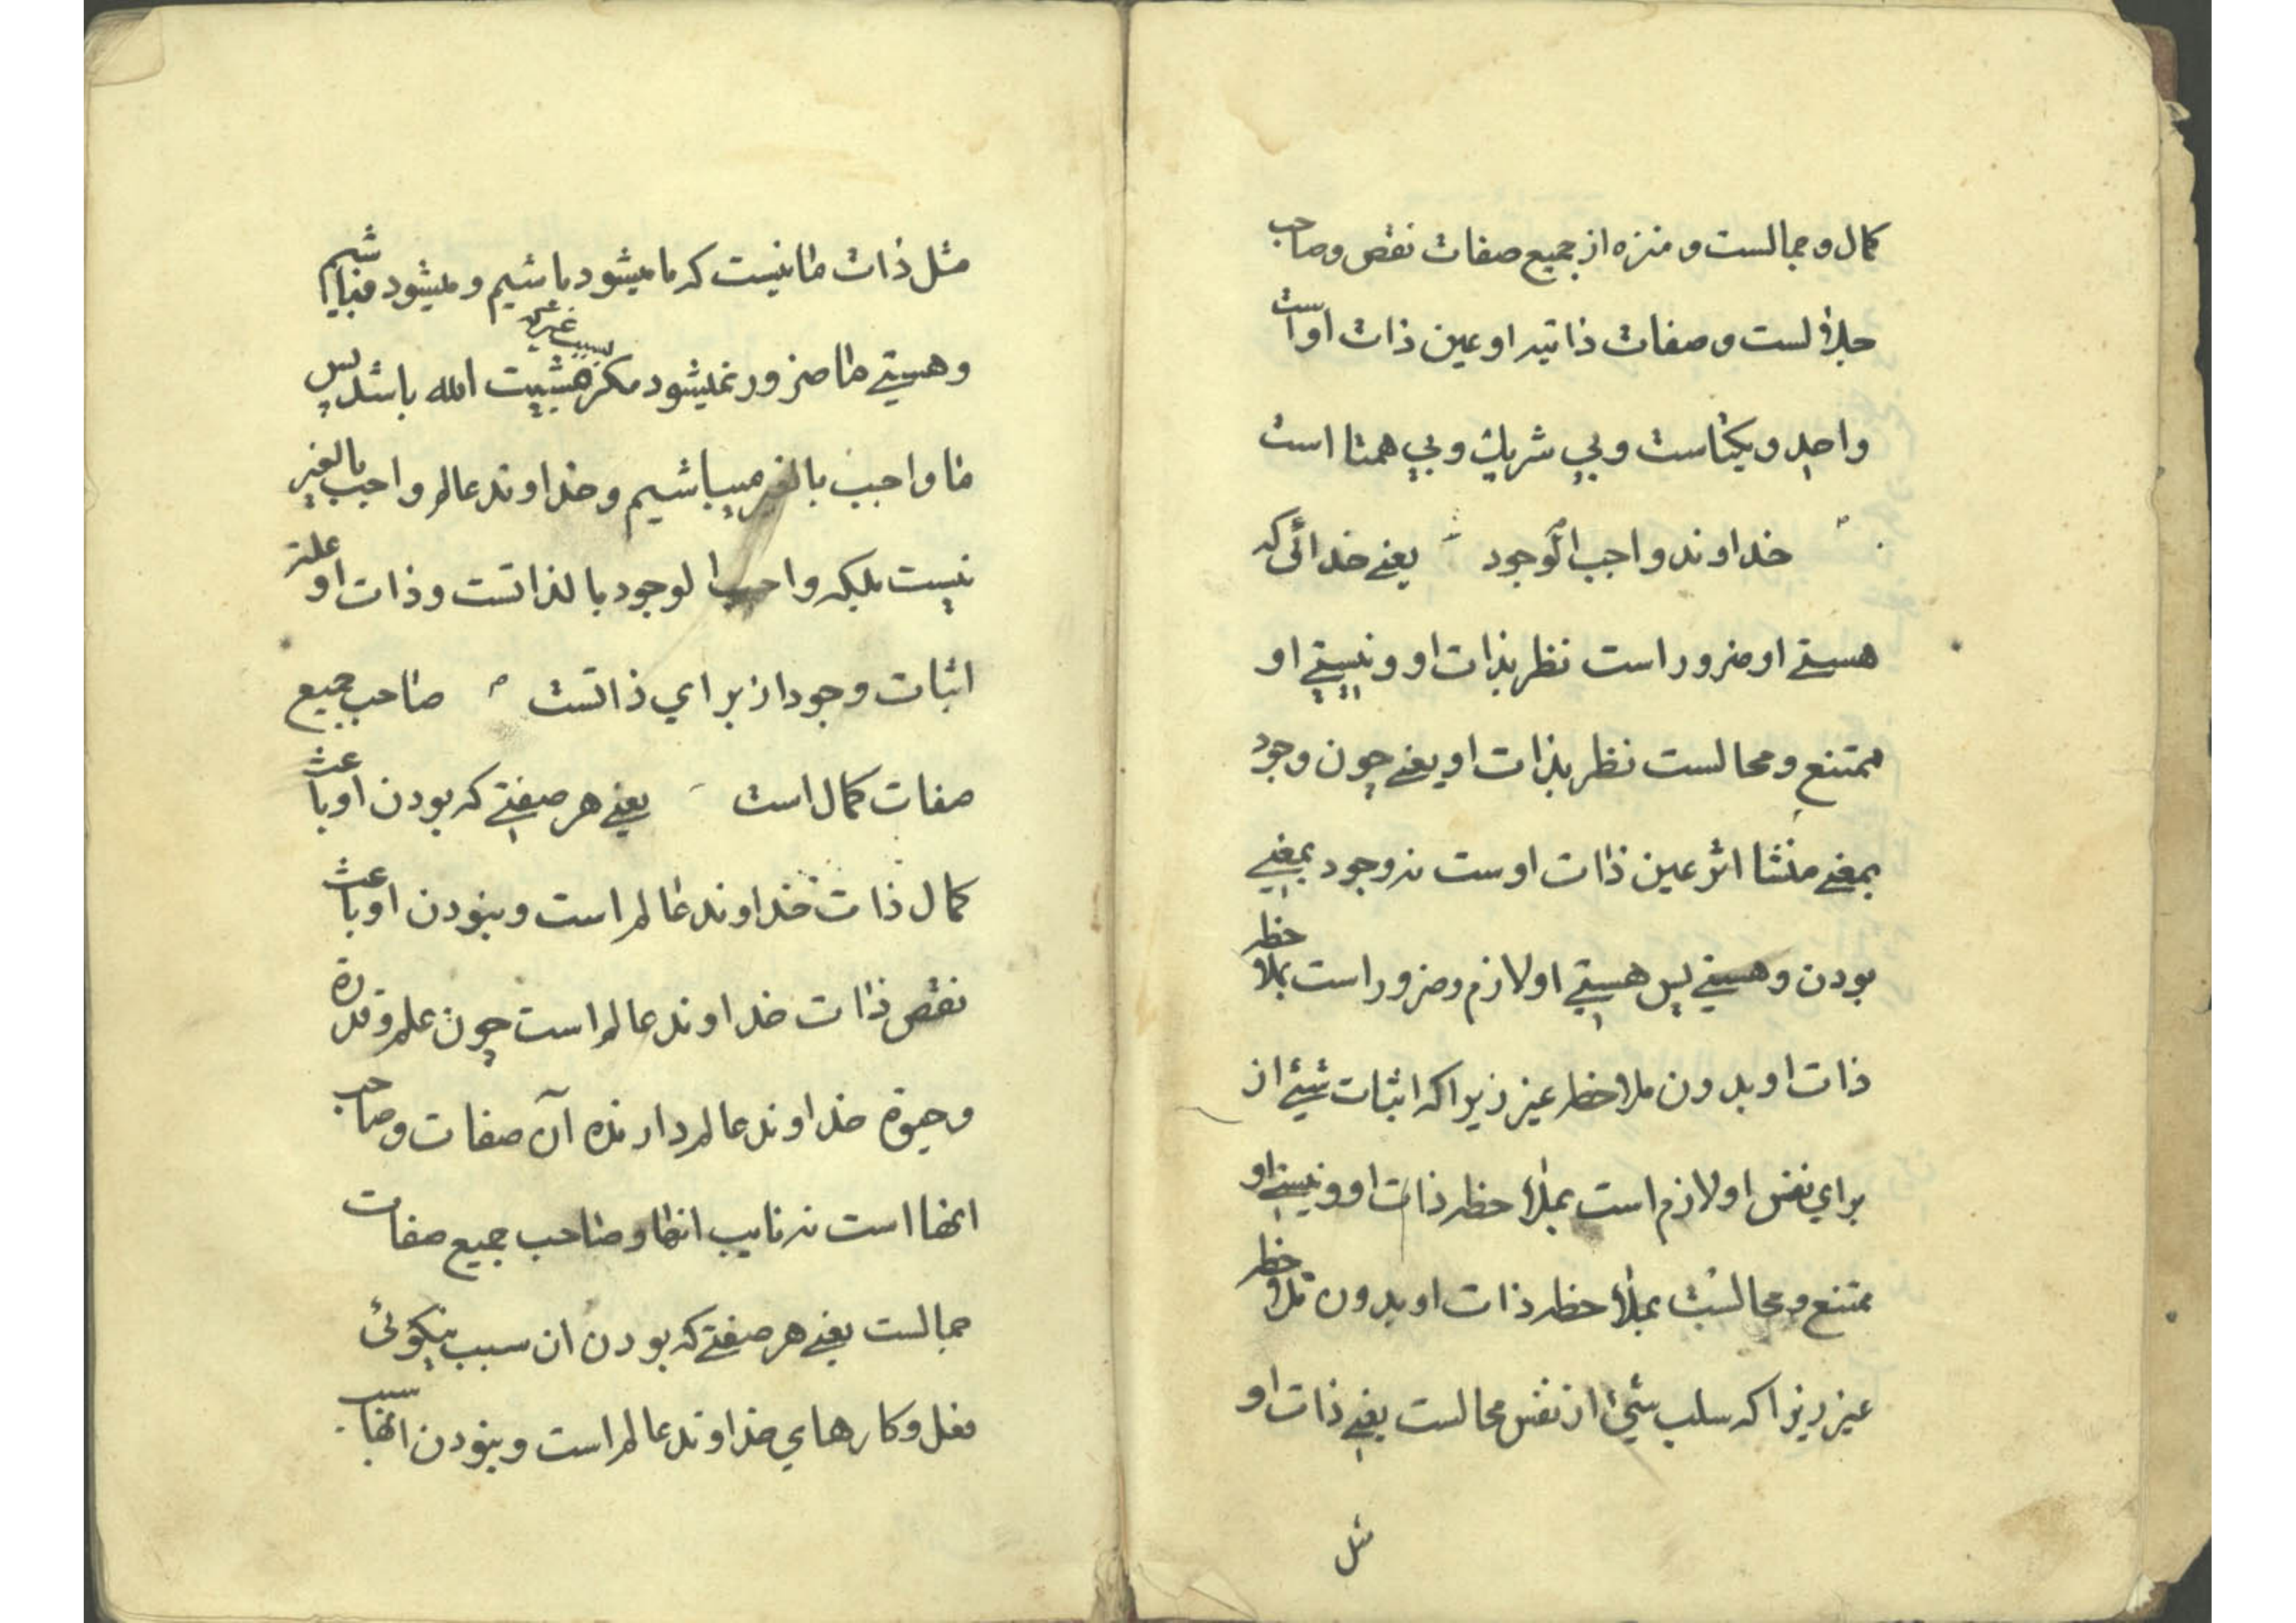 کمال و جمالست و منزه از جمیع صفات نقص و صاحب
جلالست و صفات ذاتیه او عین ذات او است
واحد و یکتاست و بی شریک و بی همتا است
خداوند واجب الوجود یعنے خدائی که
هستے او ضرور است نظر بذات او و نیستے او
ممتنع و محالست نظر بذات او یعنے چون وجود
بمعنے منشا اثر عین ذات اوست نه وجود بمعنے
بودن و هستے پس هستے او لازم و ضرور است بملاحظه
ذات او بدون ملاحظه غیر زیرا که اثبات شیئے از
برای نفس او لازم است بملاحظه ذات او و نیستے او
ممتنع و محالست بملاحظه ذات او بدون ملاحظه
غیر زیرا که سلب شیئ از نفس محالست یعنے ذات او
مثل
مثل ذات ما نیست که ما میشود باشیم و میشود نباشیم
و هستے ما ضرور نمیشود مکر بسبب غیر که مشیت الله باشد پس
ما واجب بالغیر میباشیم و خداوند عالم واجب بالغیر
نیست بلکه واجب الوجود بالذاتست و ذات او علت
اثبات وجود از برای ذاتست صاحب جمیع
صفات کمال است یعنے هر صفتے که بودن او باعث
کمال ذات خداوند عالم است و نبودن او باعث
نقص ذات خداوند عالم است چون علم و قدرة
و حیوة خداوند عالم دارنده آن صفات و صاحب
انها است نه نایب انها و صاحب جمیع صفات
جمالست یعنے هر صفتے که بودن ان سبب نیکوئی
فعل و کارهای خداوند عالم است و نبودن انها سبب